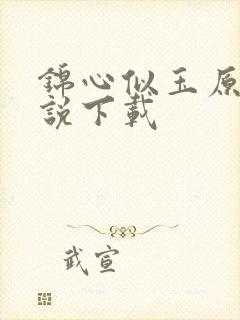 錦心似玉原
說下載
武宣